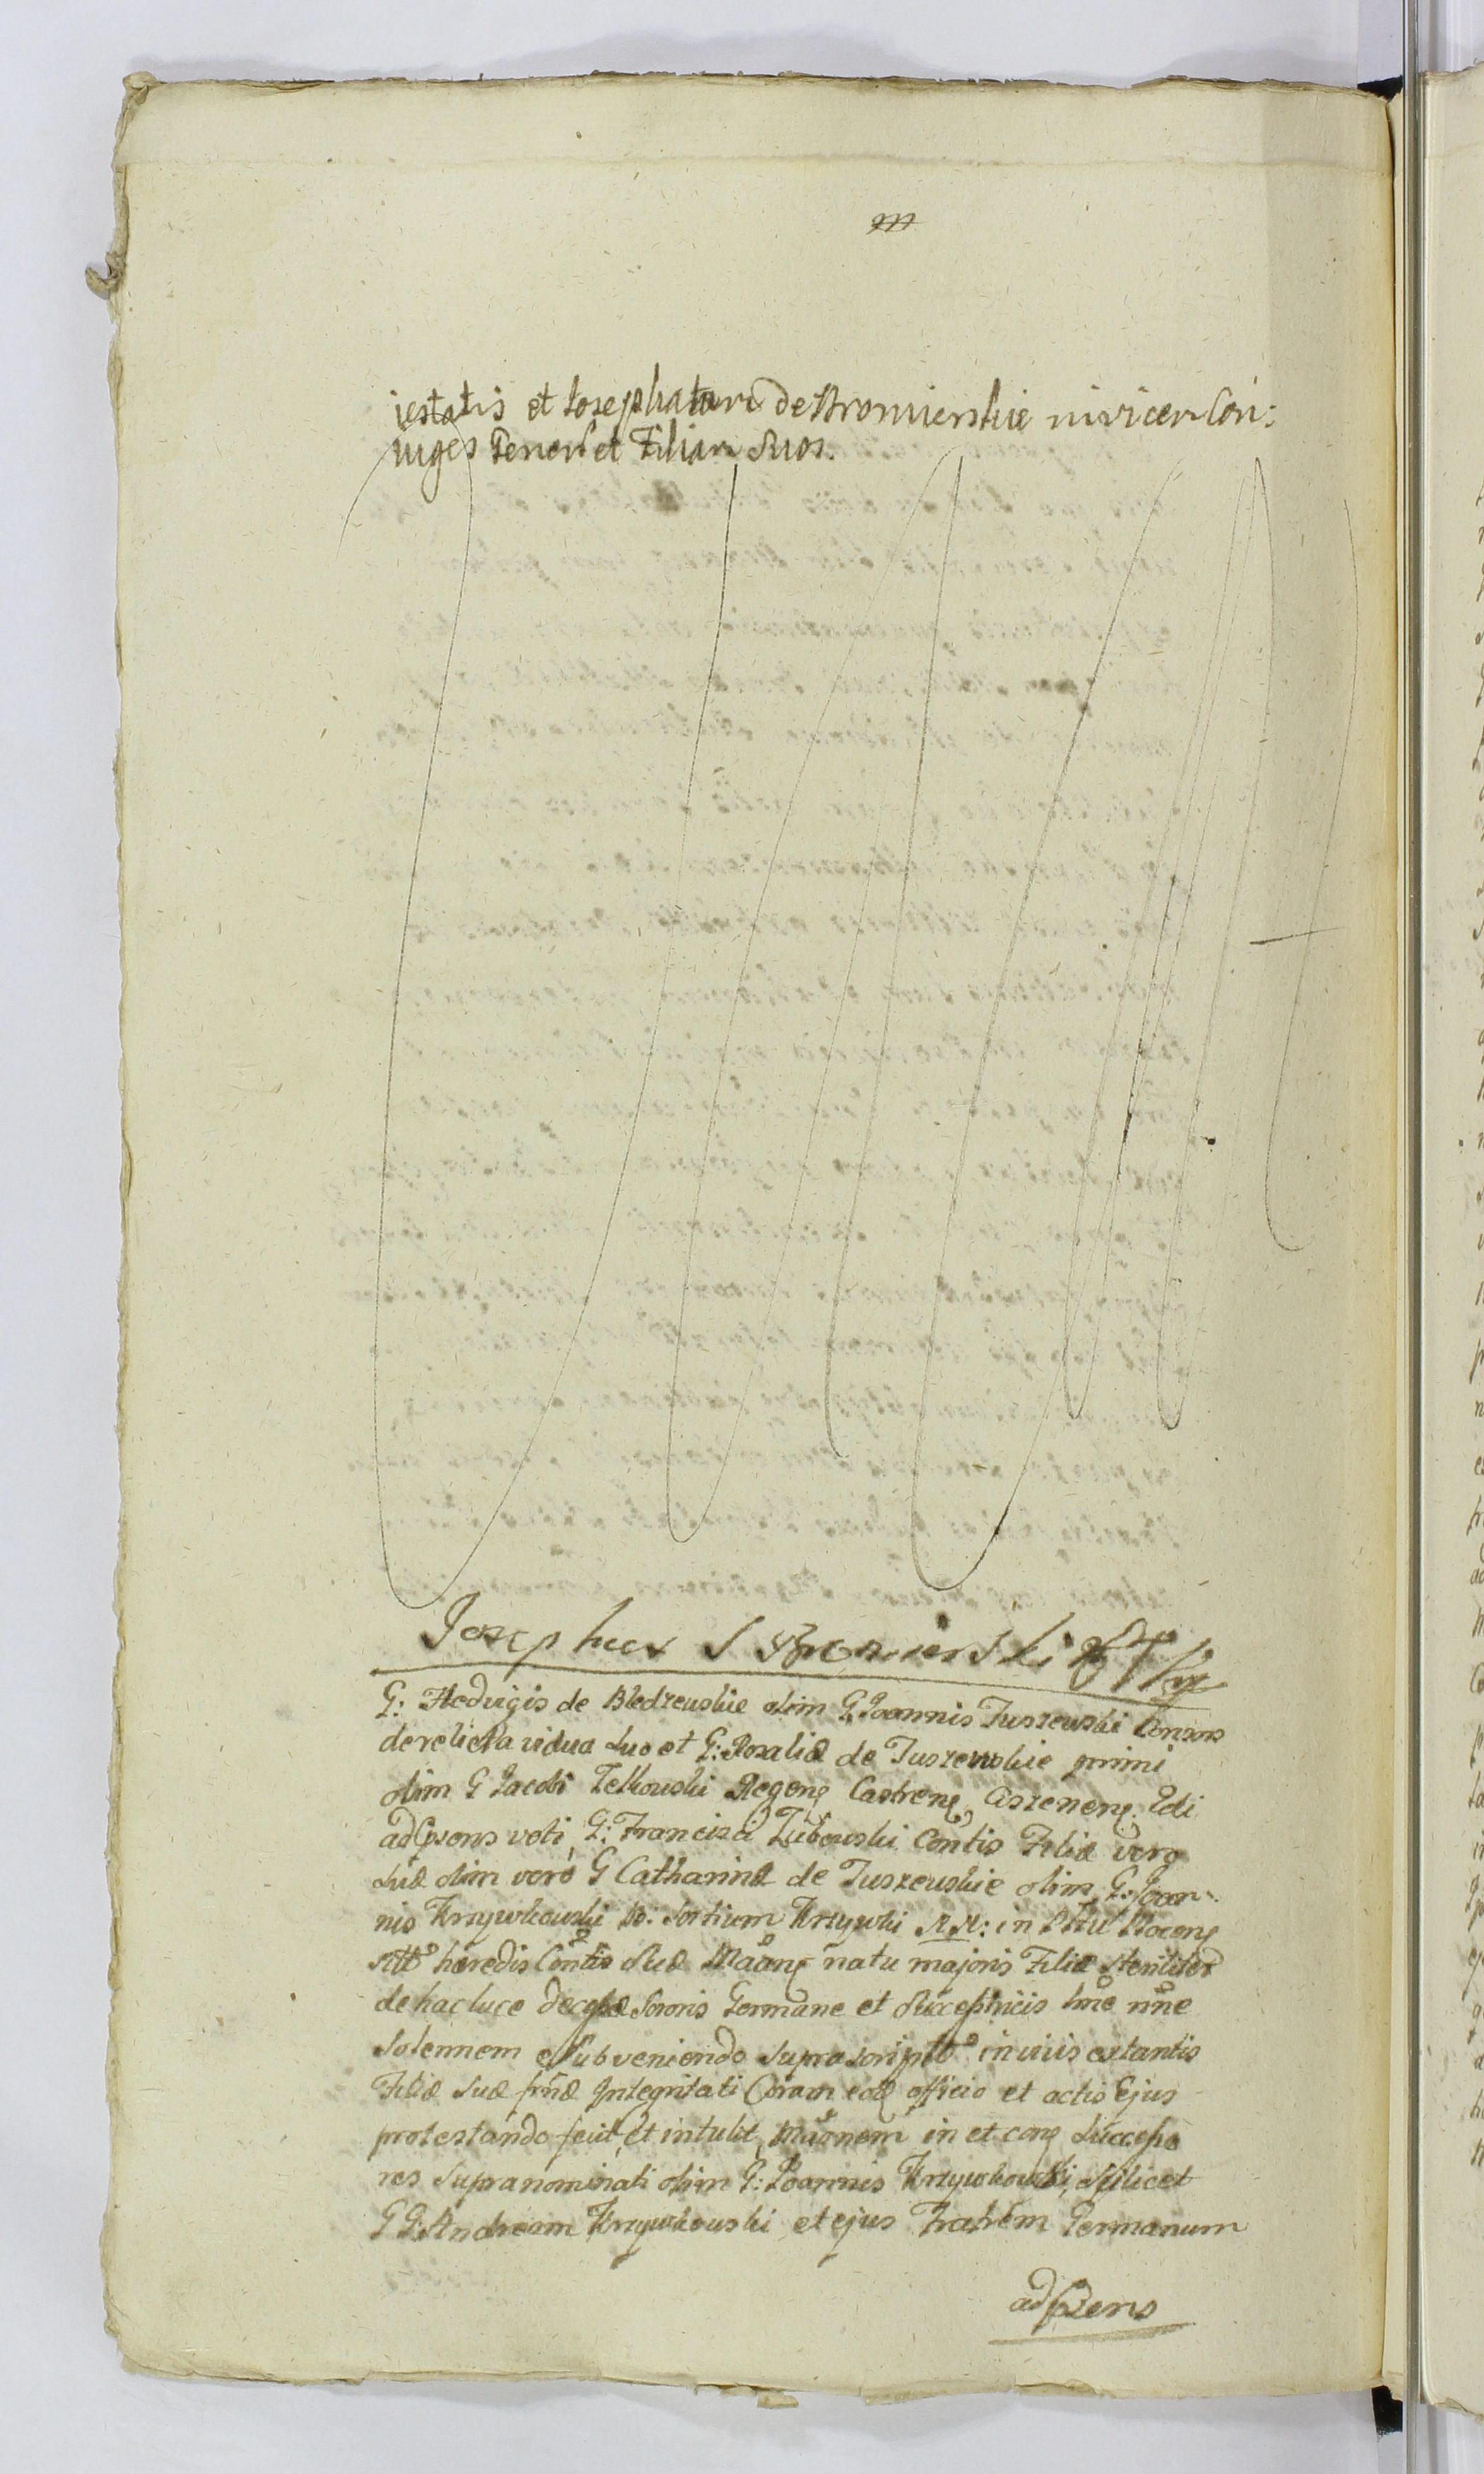 m
iestatis et Josepham de Skronierskie invicem Con:
iuges Generũ et Filiam Suos.
Josephus Skronierski
G: Hedvigis de Bledzewskie olim G Joannis Tuszewski Consors
derelicta vidua Suo et G: Rosaliæ de Tuszewskie primi
olim G Jacobi Zelkowski Regenę Castrenę 2di
ad Præns voti G: Francisci Zubowski Contis Filiæ vero
Suæ olim vero G Catharinæ de Tuszewskie olim G: Joan-
nis Krzywkowski B: Sortium Krzywki in Dttu
Stto hæredis Contis Suæ natu majoris Filiæ Steriliter
de hac luce Sororis Germane et Successtricis hnc nne
Solennem Subveniendo Suprascriptto in vivis extantis
Filiæ Suæ Integritati Coram eod officio et actis Ejus
protestando fecit et intulit in et cong Successo
res Supranominati olim G: Joannis Krzywkowski, Scilicet
G G: Andream Krzywkowski et ejus Fratrem Germanum
ad Præns